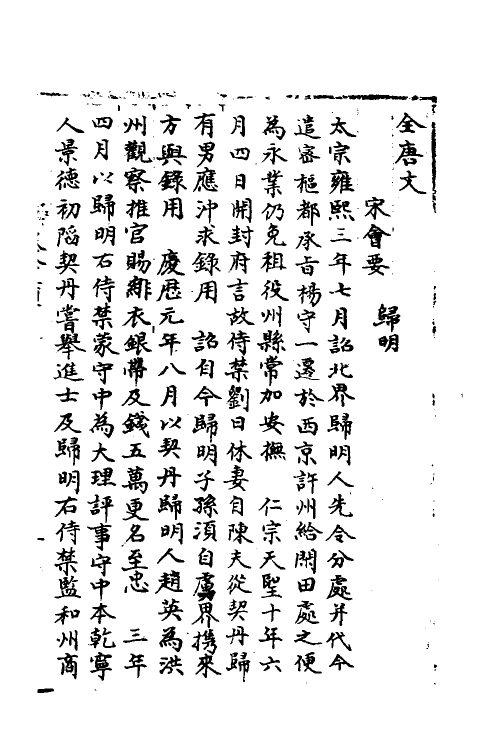 全唐文
宋會要 歸明
太宗雍熙三年七月詔北界歸明人先令分處并代今
遣宻樞都承㫖楊守一遷於西京許州給閒田處之便
為永業仍免租役州縣常加安撫 仁宗天聖十年六
月四日開封府言故侍禁劉日休妻自陳夫從契丹歸
有男應沖求錄用 詔自今歸明子孫須自虜界擕來
方與錄用 慶歷元年八月以契丹歸明人趙英為洪
州觀察推官賜緋衣銀帶及錢五萬更名至忠 三年
四月以歸明右侍禁蒙守中為大理評事守中本乾寧
人景德初䧟契丹嘗舉進士及歸明右侍禁監和州商